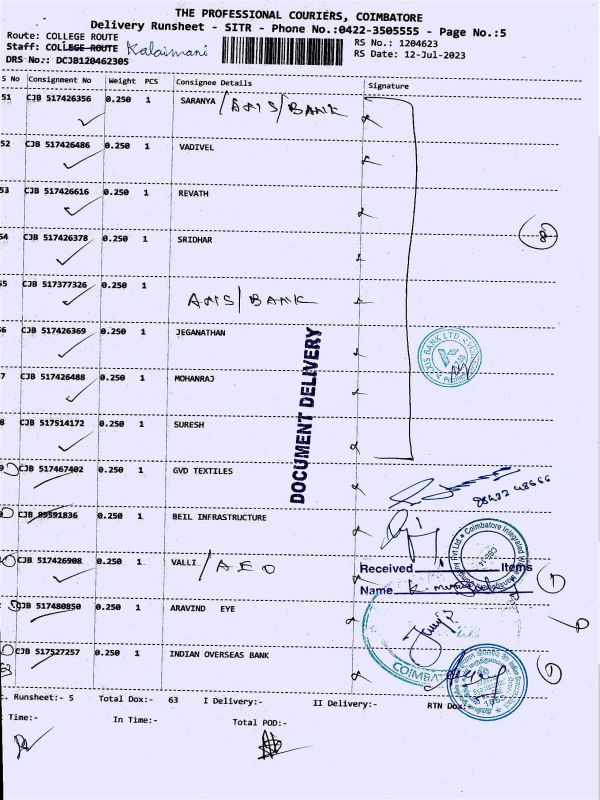 THE PROFESSIONAL COURIERS, COIMBATORE
Delivery Runsheet - SITR - Phone No.:0422-3505555 - Page No.:5
Route: COLLEGE ROUTE
RS No.: 1204623
Staff: COLLEGE ROUTE Kalaimani
RS Date: 12-Jul-2023
DRS No.: DCJB120462305
S No Consignment No Weight PCS Consignee Details Signature
51 CJB 517426356 0.250 1 SARANYA / AXIS / BANK
52 CJB 517426486 0.250 1 VADIVEL
53 CJB 517426616 0.250 1 REVATH
54 CJB 517426378 0.250 1 SRIDHAR
8
55 CJB 517377326 0.250 1
AXIS / BANK
6 CJB 517426369 0.250 1 JEGANATHAN
AXIS BANK LTD
7 CJB 517426488 0.250 1 MOHANRAJ
DOCUMENT DELIVERY
8 CJB 517514172 0.250 1 SURESH
9 CJB 517467402 0.250 1 GVD TEXTILES
CJB 89591836 0.250 1 BEIL INFRASTRUCTURE
Coimbatore Integrated
Pvt Ltd
CJB 517426908 0.250 1 VALLI / AEO
Received Items
Name
CJB 517480850 0.250 1 ARAVIND EYE
COIMBAT
CJB 517527257 0.250 1 INDIAN OVERSEAS BANK
1865
c. Runsheet:- 5 Total Dox:- 63 I Delivery:- II Delivery:- RTN Dox:-
Time:- In Time:- Total POD:-